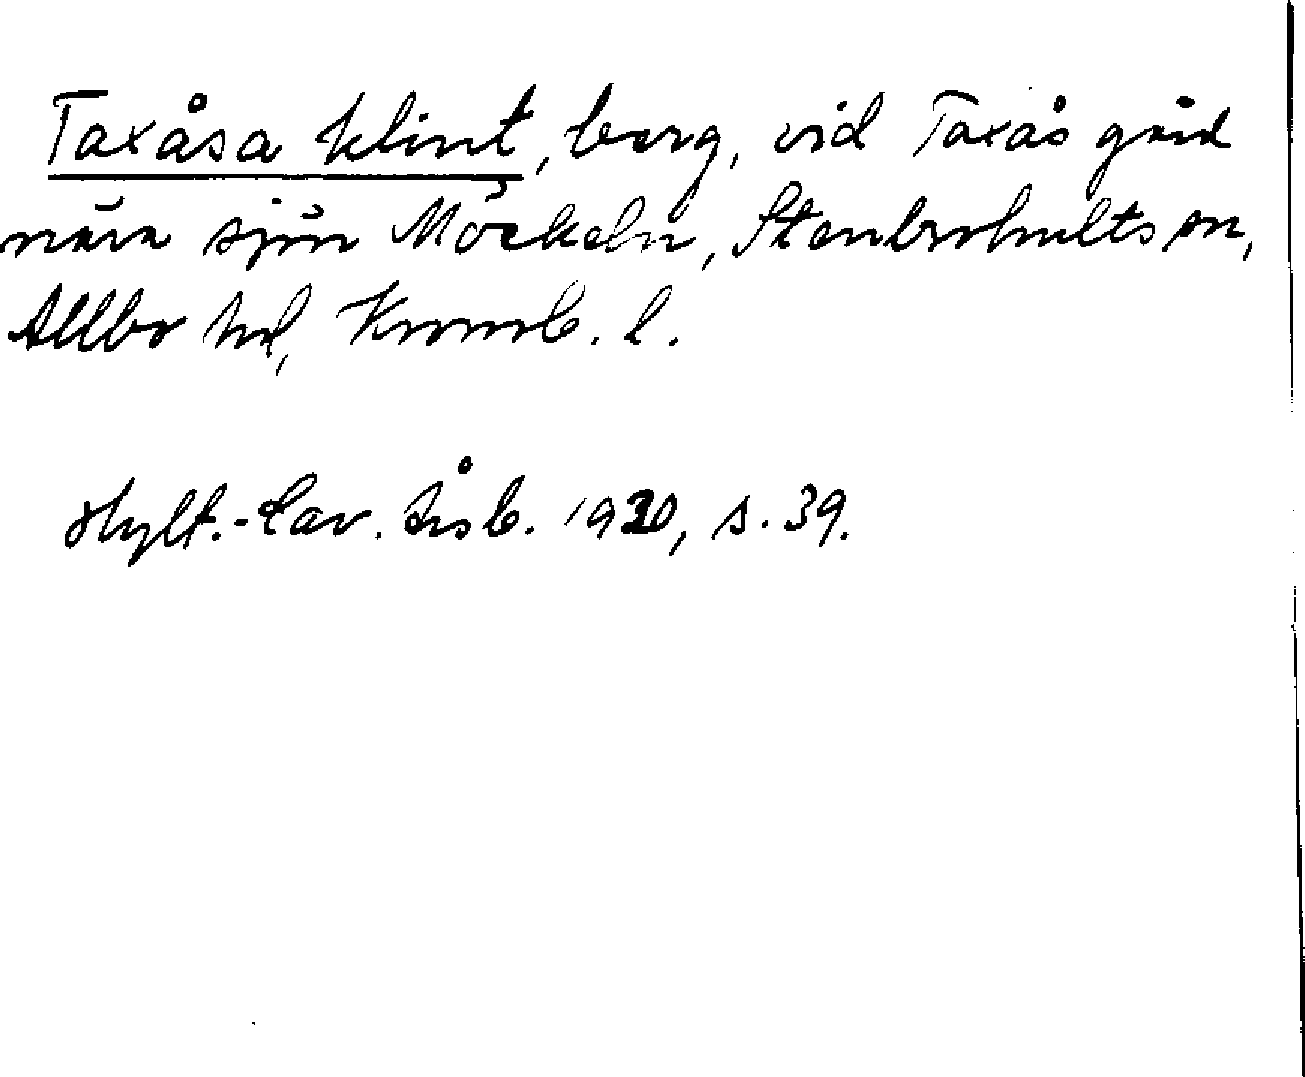 Taxåsa klint, berg, vid Taxås gård
nära sjön Möckeln, Stenbrohults sn,
Allbo hd, Kronob. l.
Hylt.-Cav. Årsb. 1930, s. 39.